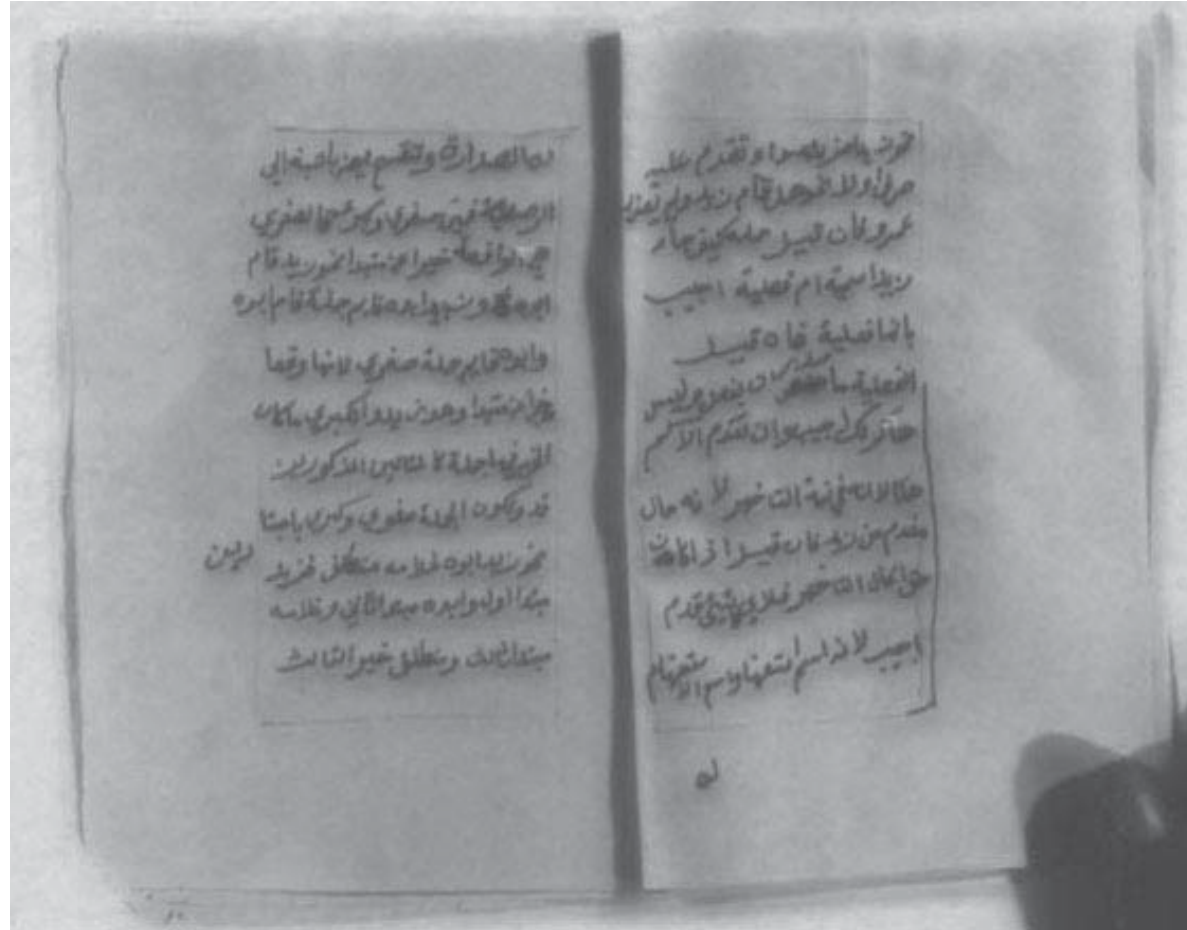 نحو زيدا عمرا وتقدم عليه
حرف اولا نحو هل قام زيد ولم يقم
عمرو فان قيل جملة كيف جاء
زيد اسمية ام فعلية اجيب
بانها فعلية فان قيل
الفعلية ما
اجيب وان تقدم الاسم
هنا لانه في نية التاخير لانه حال
مقدم من زيد فان قيل اذا كان
حق الحال التاخير فلاي شيئ قدم
اجيب لانه اسم استفهام واسم الاستفهام
له
له الصدارة وتنقسم
صغري وكبري فالصغري
هي الواقعة خبرا عن مبتدا نحو زيد قام
ابوه وزيد ابوه قايم جملة قام ابوه
وابوه قايم جملة صغري لانها وقعا
خبرا عن مبتدا وهو زيد والكبري ما كان
الخبر فيها جملة كالمثالين المذكورين
قد وتكون الجملة صغري وكبري باعتبا
رين
نحو زيد ابوه غلامه منطلق فزيد
مبتدا اول وابوه مبتدا ثاني وغلامه
مبتدا ثالث ومنطلق خبر الثالث